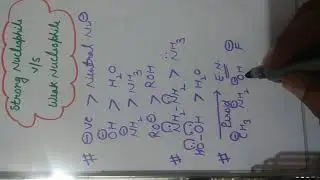 Strong Nucleophile
v/s
Weak Nucleophile
# ⊖ve > Neutral Nu
⊖OH > H₂O
⊖NH₂ > NH₃
RO⊖ > ROH
# N̈H₂–N̈H₂ > NH₃
HÖ–ÖH > H₂O
# Period → E.N.
⊖CH₃ ⊖NH₂ ⊖OH F⊖